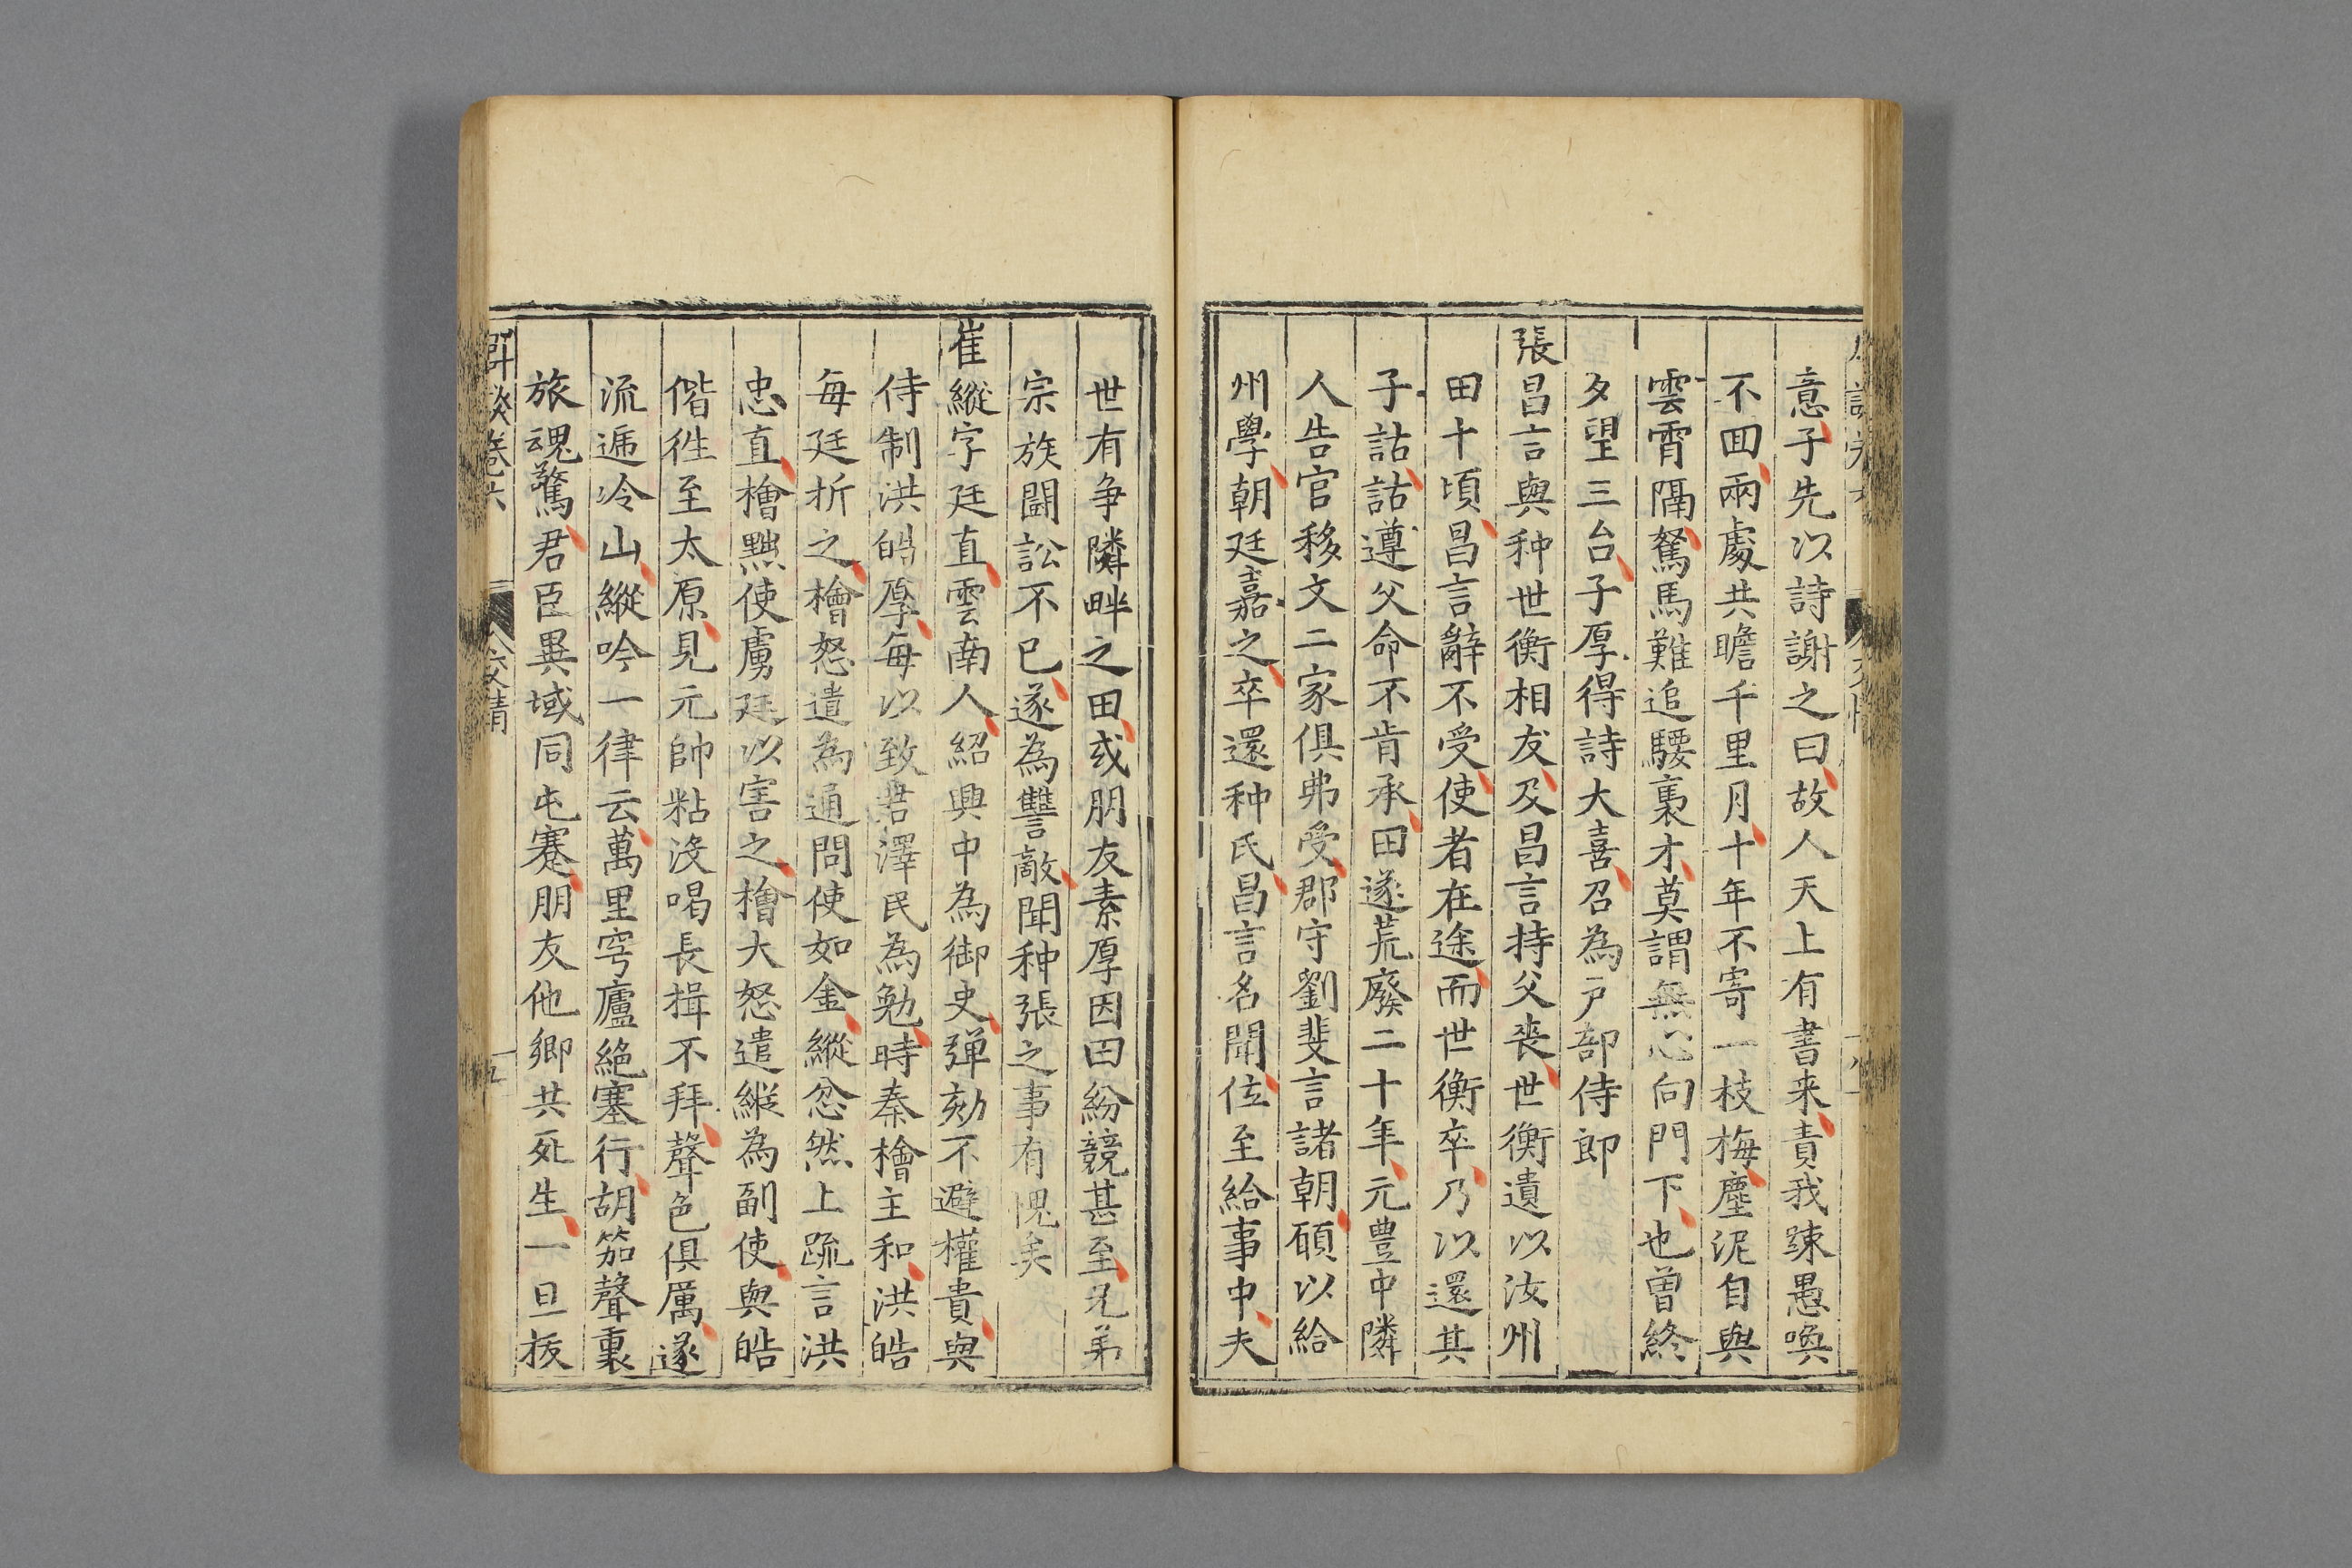 意子先以詩謝之曰故人天上有書来責我踈愚喚
不囬兩處共瞻千里月十年不寄一枝梅塵泥自與
雲霄隔駑馬難追騕褭才莫謂無心向門下也曾終
夕望三台子厚得詩大喜召為戸部侍郎
張昌言與种世衡相友及昌言持父喪世衡遺以汝州
田十頃昌言辭不受使者在途而世衡卒乃以還其
子詁詁遵父命不肯承田遂荒廢二十年元豊中隣
人告官移文二家俱弗受郡守劉斐言諸朝願以給
州學朝廷嘉之卒還种氏昌言名聞位至給事中夫
世有争隣畔之田或朋友素厚因田紛競甚至兄弟
宗族鬬訟不已遂為讐敵聞种張之事有愧矣
崔縱字廷直雲南人紹興中為御史彈劾不避權貴與
侍制洪皓厚每以致君澤民為勉時秦檜主和洪皓
每廷折之檜怒遣為通問使如金縱忿然上疏言洪
忠直檜黙使虜廷以害之檜大怒遣縱為副使與皓
偕徃至太原見元帥粘没喝長揖不拜聲色俱厲遂
流逓冷山縱吟一律云萬里穹廬絶塞行胡笳聲裏
旅魂驚君臣異域同屯蹇朋友他鄉共死生一旦拔
卷六 交情